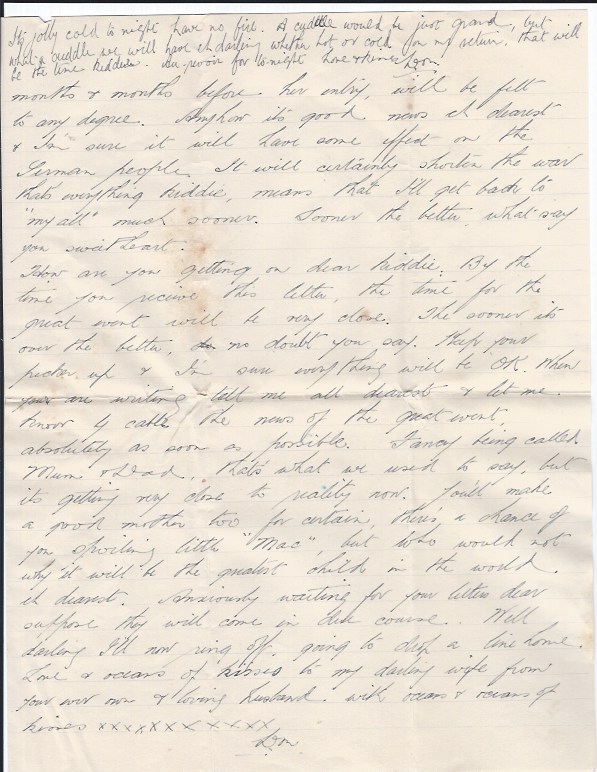 It's jolly cold to night have no fire. A cuddle would be just grand, but
what a cuddle we will have eh darling whether hot or cold on my return, that will
be the time kiddie. Au revoir for to night Love & kisses Don
months & months before her entry, will be felt
to any degree. Anyhow its good news eh dearest
& I'm sure it will have some effect on the
German people. It will certainly shorten the war
thats everything kiddie, means that I'll get back to
"my all" much sooner. Sooner the better, what say
you sweetheart.
How are you getting on dear kiddie. By the
time you receive this letter, the time for the
great event will be very close. The sooner its
over the better, no doubt you say. Keep your
pecker up & I'm sure everything will be OK. When
you are writing tell me all dearest & let me
know by cable the news of the great event,
absolutely as soon as possible. Fancy being called
Mum & Dad, thats what we used to say, but
its getting very close to reality now. You'll make
a good mother too for certain, there's a chance of
you spoiling little "Mac", but who would not
why it will be the greatest child in the world.
eh dearest. Anxiously waiting for your letters dear
suppose they will come in due course. Well
darling I'll now ring off, going to drop a line home.
Love & oceans of kisses to my darling wife from
your ever own & loving husband. with oceans & oceans of
kisses xxxxxxxxxxxx
Don